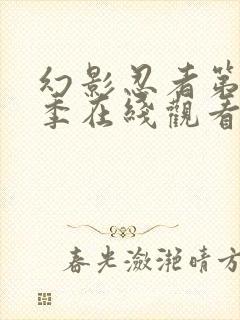 幻影忍者第
季在线觀看
春光潋滟晴方